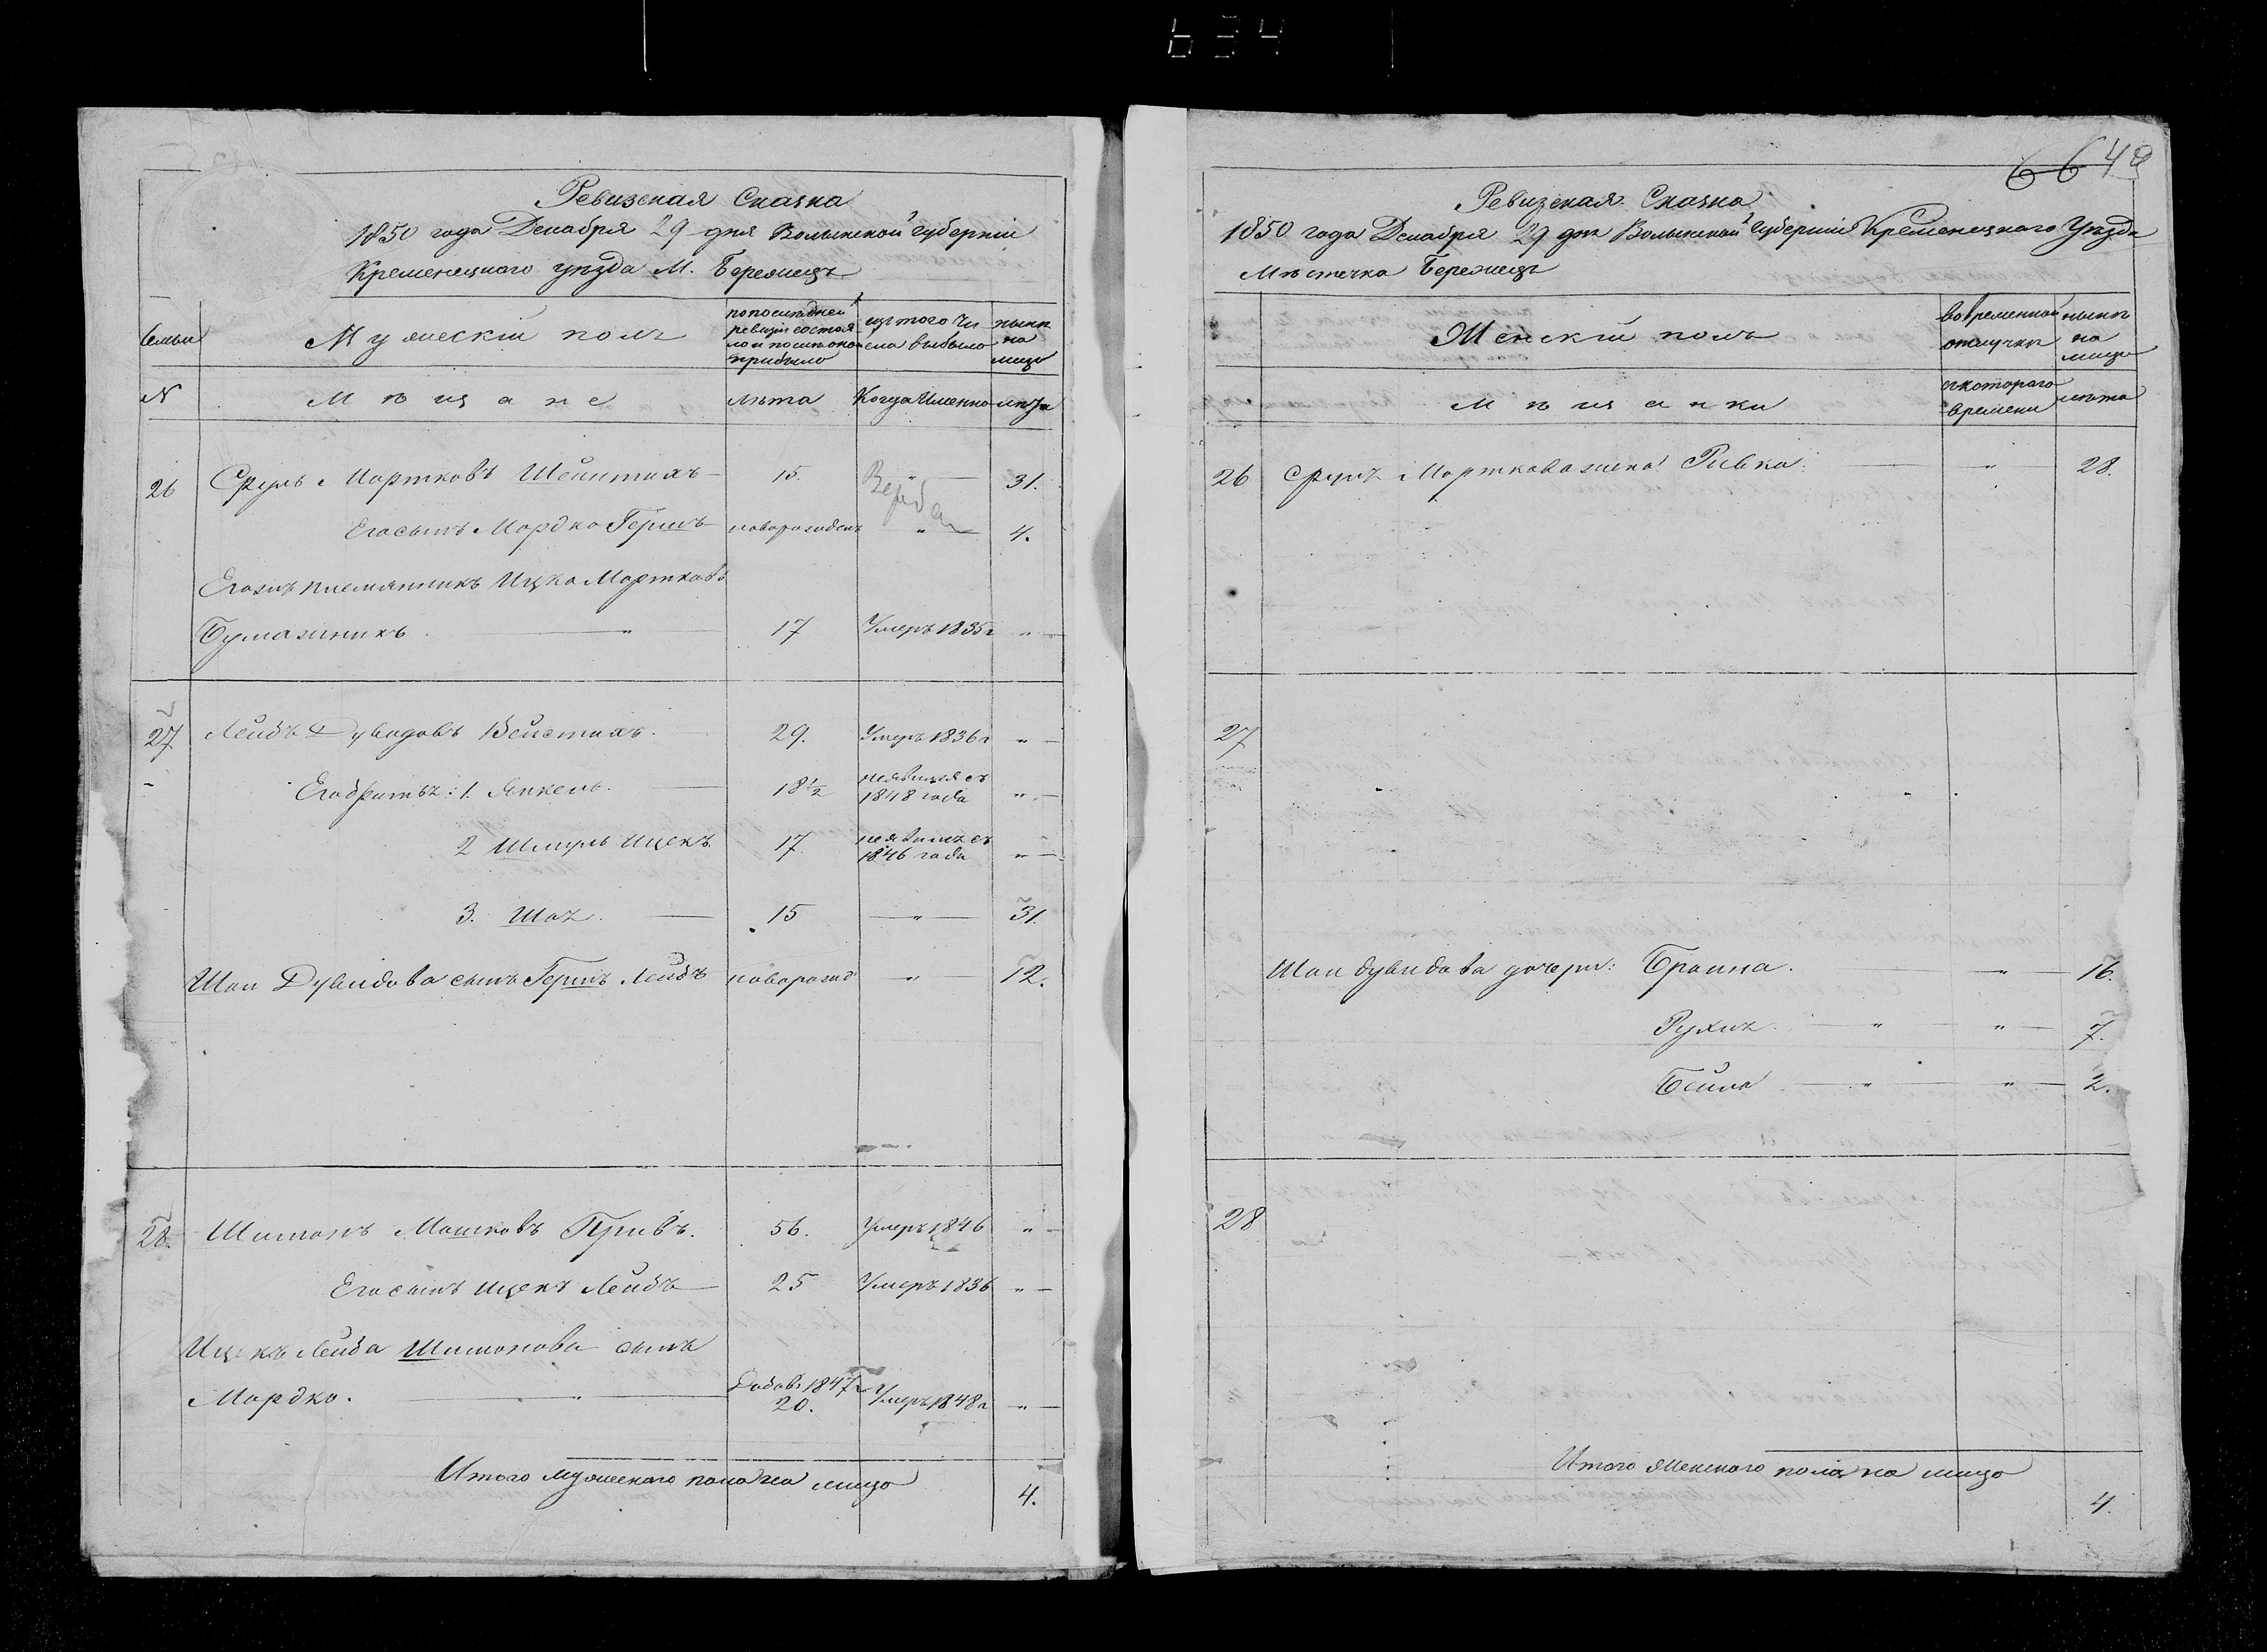 634
Ревизская Сказка
1850 года Декабря 29 дня Волынской Губерніи
Кременецкаго уѣзда М. Бережецъ
Семьи
Мужескій полъ
по последней
ревизіи состоя
ло и после оной
прибыло
изъ того чи
сла выбыло
нынѣ
на
лицо
N
Мѣщане
лѣта
Когда Именно
лѣта
26 Сруль Мортковъ Шейнтихъ 15. " 31.
Его сынъ Мордко Гершъ новорожденъ " 4.
Его же племянникъ Ицко Мортковъ
Бумажникъ " 17 Умеръ 1835 г "
27 Лейбъ Дувидовъ Вейстихъ. 29. Умеръ 1836 г "
Его братья: 1. Янкель. 18½ неявился съ
1848 года "
2 Шмуль Ицекъ 17. неявился съ
1846 года "
3. Шая. 15 " 31.
Шаи Дувидова сынъ Гершъ Лейбъ поворожд " 12.
28. Шимонъ Мошковъ Привъ. 56. Умеръ 1846 "
Его сынъ Ицекъ Лейбъ 25 Умеръ 1836 "
Ицекъ Лейба Шимонова сынъ
Мордко. " Добав. 1847 г
20. Умеръ 1848 г "
Итого мужескаго пола на лицо
4.
6649
Ревизская Сказка
1850 года Декабря 29 дня Волынской Губерніи Кременецкаго Уѣзда
Мѣстечка Бережецъ
Женскій полъ
во временной
отлучкѣ
нынѣ
на
лицо
Мѣщанки
с котораго
времени
лѣта
26 Сруля Морткова жена Ривка. " 28.
27
Шаи Дувидова дочери: Браина. " 16.
Рухля " " 7.
Бейла " " 2.
28
Итого Женскаго пола на лицо
4.